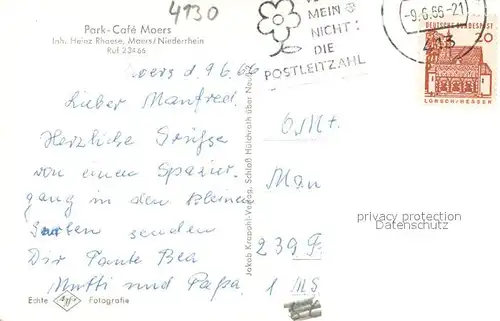 4130
Park-Café Moers
Inh. Heinz Rhaese, Moers/Niederrhein
Ruf 23466
MEIN
NICHT:
DIE
POSTLEITZAHL
-9.6.66-21
413
DEUTSCHE BUNDESPOST
20
LORSCH/HESSEN
Moers d. 9.6.66
Lieber Manfred.
Herzliche Grüsse
von einem Spazier-
gang in den kleinen
Garten senden
Dir Tante Bea
Mutti und Papa.
Jakob Krapohl-Verlag, Schloß Hülchrath über Neuss
Man
239 F
1 MS
privacy protection
Datenschutz
Echte Agfa Fotografie